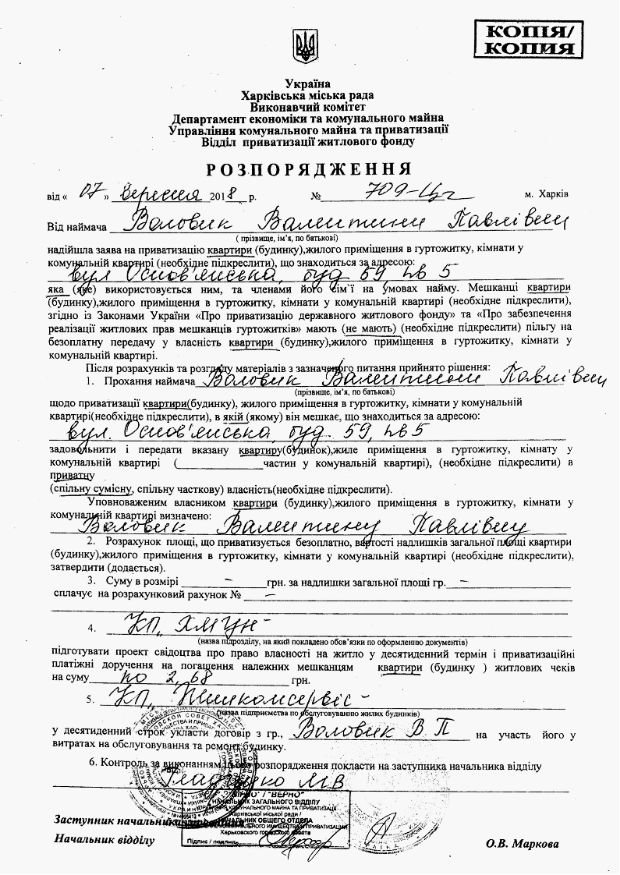 КОПІЯ/
КОПИЯ
Україна
Харківська міська рада
Виконавчий комітет
Департамент економіки та комунального майна
Управління комунального майна та приватизації
Відділ приватизації житлового фонду
РОЗПОРЯДЖЕННЯ
від « 07 » вересня 2018 р. № 709-Цг м. Харків
Від наймача Воловик Валентини Павлівни
( прізвище, ім'я, по батькові)
надійшла заява на приватизацію квартири (будинку),жилого приміщення в гуртожитку, кімнати у
комунальній квартирі (необхідне підкреслити), що знаходиться за адресою:
вул Основ'янська буд 59 кв 5
яка (яке) використовується ним, та членами його сім`ї на умовах найму. Мешканці квартири
(будинку),жилого приміщення в гуртожитку, кімнати у комунальній квартирі (необхідне підкреслити),
згідно із Законами України «Про приватизацію державного житлового фонду» та «Про забезпечення
реалізації житлових прав мешканців гуртожитків» мають (не мають) (необхідне підкреслити) пільгу на
безоплатну передачу у власність квартири (будинку),жилого приміщення в гуртожитку, кімнати у
комунальній квартирі.
Після розрахунків та розгляду матеріалів з зазначеного питання прийнято рішення:
1. Прохання наймача Воловик Валентини Павлівни
(прізвище, ім'я, по батькові)
щодо приватизації квартири(будинку), жилого приміщення в гуртожитку, кімнати у комунальній
квартирі(необхідне підкреслити), в якій (якому) він мешкає, що знаходиться за адресою:
вул. Основ'янська, буд. 59, кв 5
задовольнити і передати вказану квартиру(будинок),жиле приміщення в гуртожитку, кімнату у
комунальній квартирі (____________частин у комунальній квартирі), (необхідне підкреслити) в
приватну
(спільну сумісну, спільну часткову) власність(необхідне підкреслити).
Уповноваженим власником квартири (будинку),жилого приміщення в гуртожитку, кімнати у
комунальній квартирі визначено:
Воловик Валентину Павлівну
2. Розрахунок площі, що приватизується безоплатно, вартості надлишків загальної площі квартири
(будинку),жилого приміщення в гуртожитку, кімнати у комунальній квартирі (необхідне підкреслити),
затвердити (додається).
3. Суму в розмірі – грн. за надлишки загальної площі гр. –
сплачує на розрахунковий рахунок № –
4. КП, ХМУН-
(назва підрозділу, на який покладено обов'язки по оформленню документів)
підготувати проект свідоцтва про право власності на житло у десятиденний термін і приватизаційні
платіжні доручення на погашення належних мешканцям квартири (будинку ) житлових чеків
на суму по 2,68 грн.
5. КП, Жилкомсервіс-
(назва підприємства по обслуговуванню жилих будинків)
у десятиденний строк укласти договір з гр., Воловик В.П на участь його у
витратах на обслуговування та ремонт будинку.
6. Контроль за виконанням розпорядження покласти на заступника начальника відділу
"ВЕРНО"
НАЧАЛЬНИК ЗАГАЛЬНОГО ВІДДІЛУ
КОМУНАЛЬНОГО МАЙНА ТА ПРИВАТИЗАЦІЇ
Харківської міської ради /
НАЧАЛЬНИК ОБЩЕГО ОТДЕЛА
Харьковского городского совета
Підпис / подпись
Заступник начальника
Начальник відділу О.В. Маркова